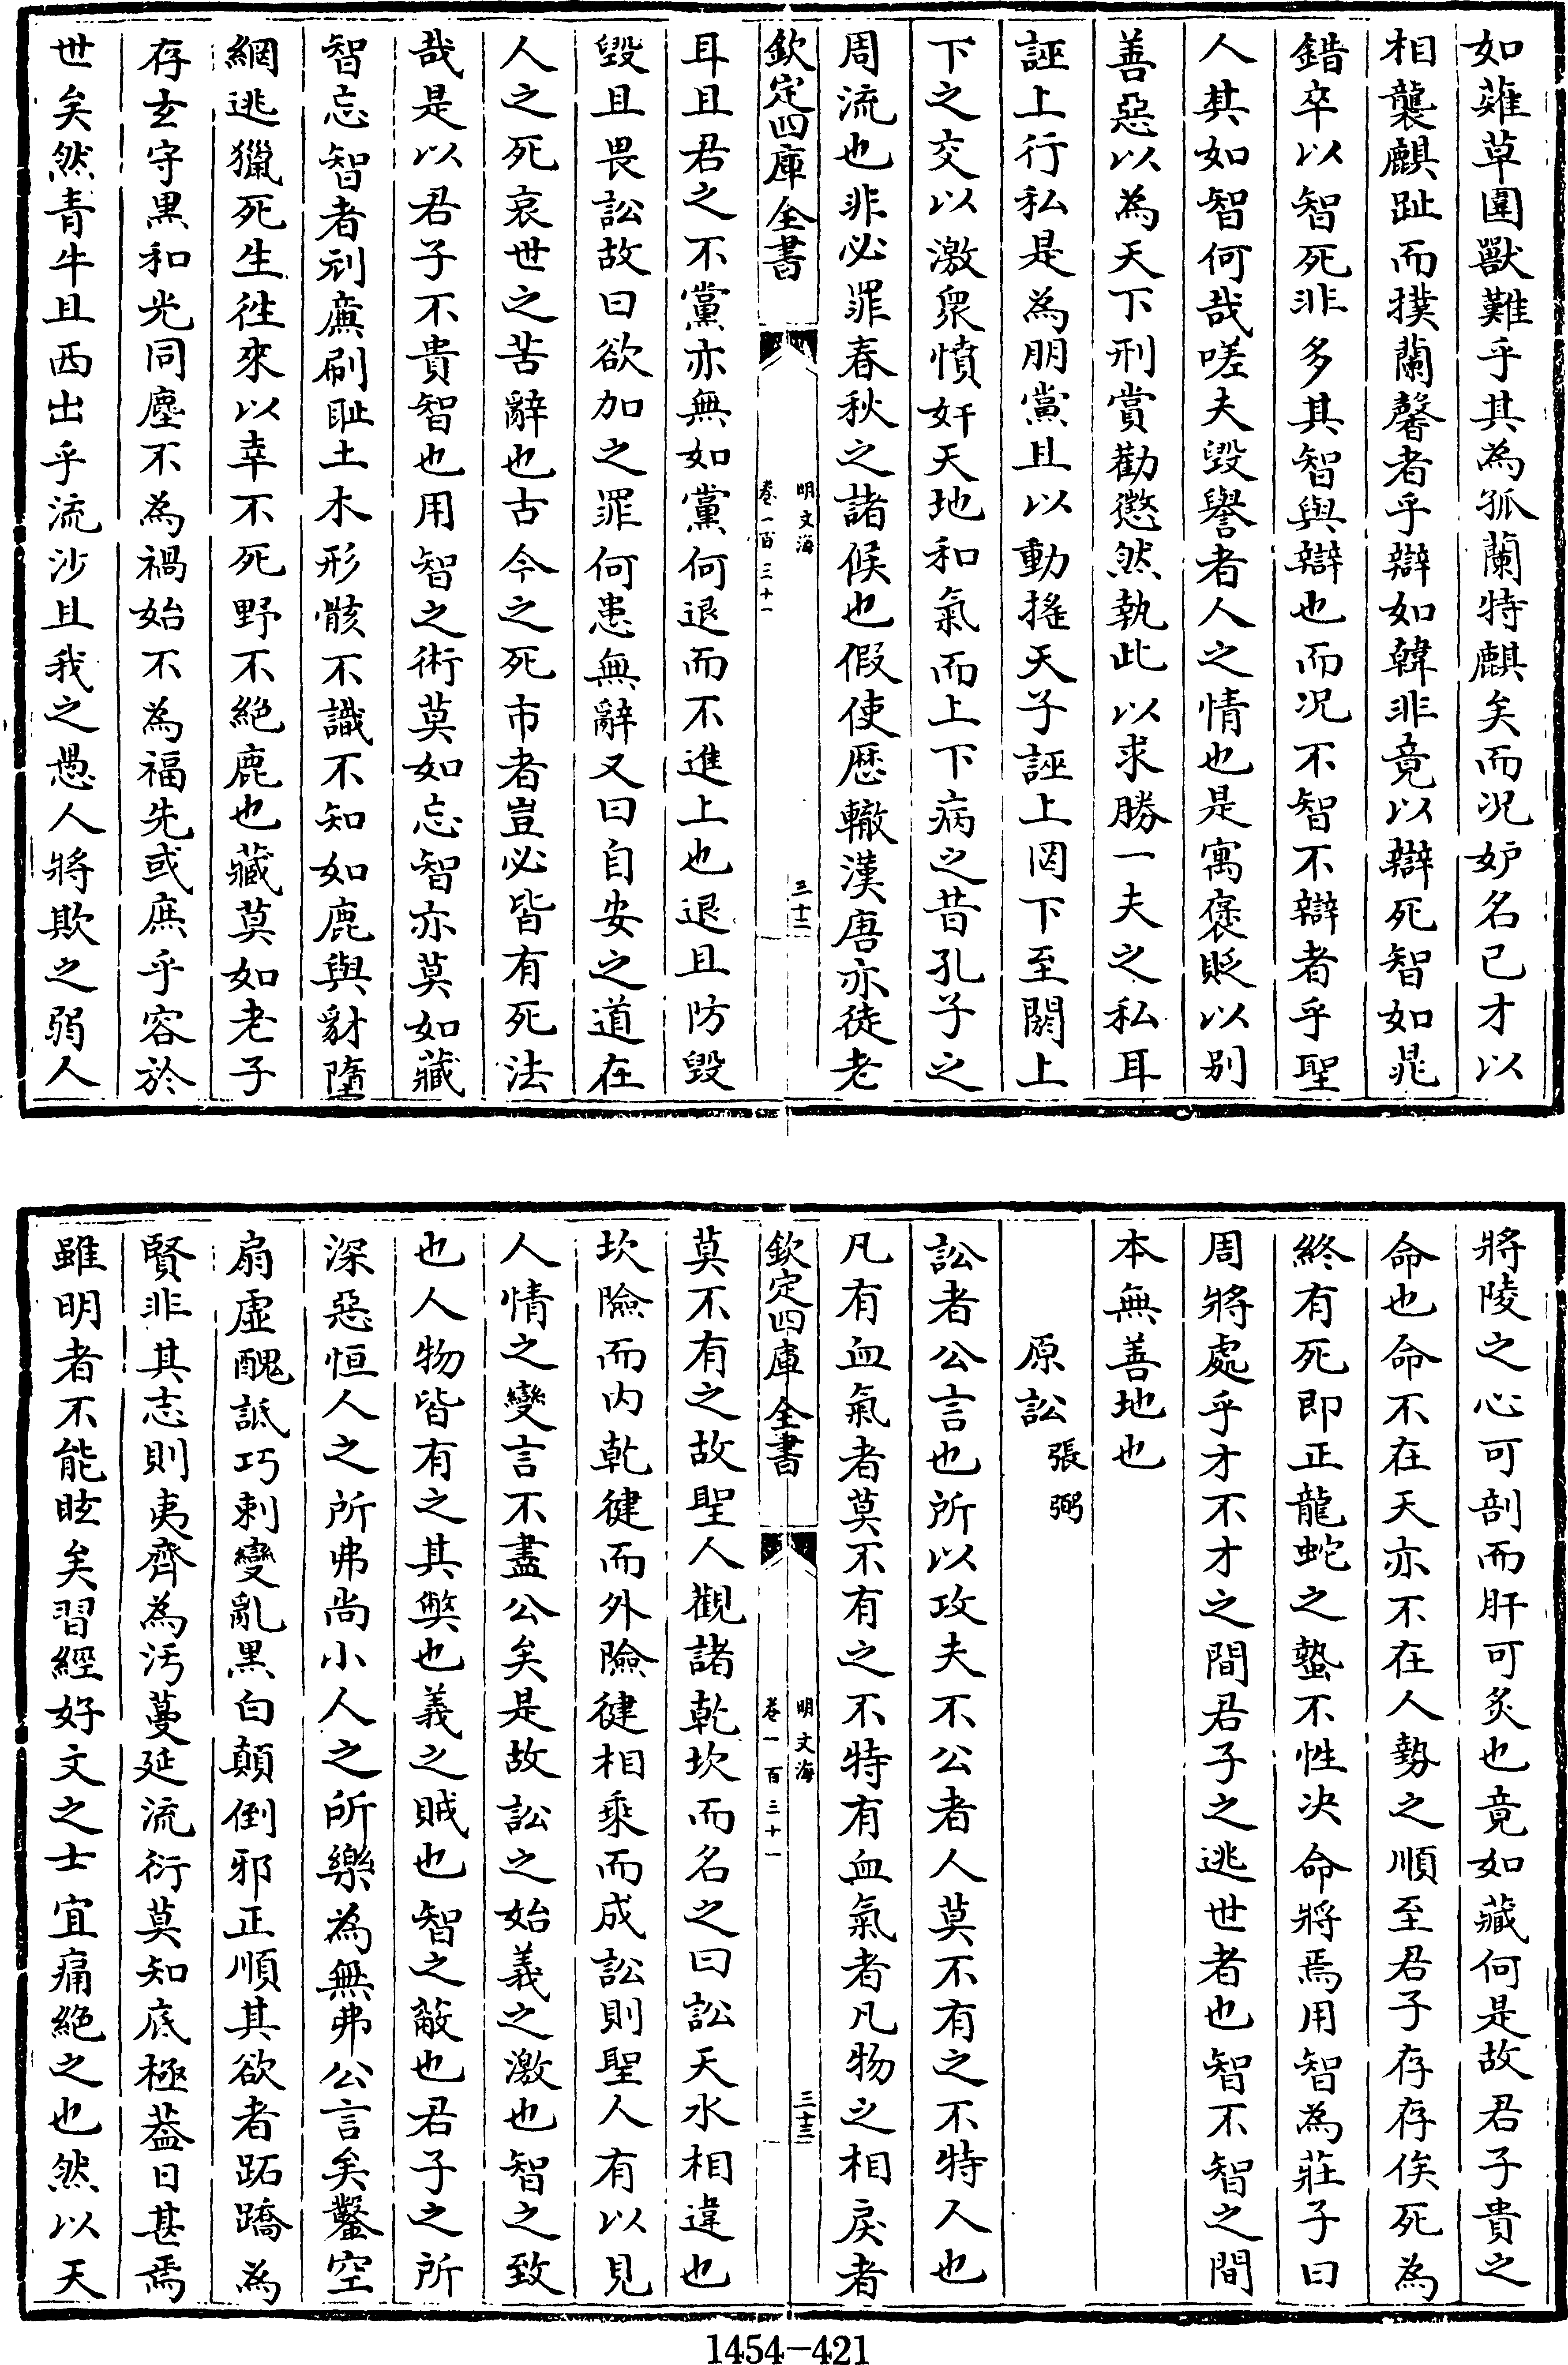 如薙草圍獸難乎其為孤蘭特麒矣而況妒名已才以
相襲麒趾而撲蘭馨者乎辯如韓非竟以辯死智如鼂
錯卒以智死非多其智與辯也而況不智不辯者乎聖
人其如智何哉嗟夫毀譽者人之情也是寓褒貶以别
善惡以為天下刑賞勸懲然執此以求勝一夫之私耳
誣上行私是為朋黨且以動搖天子誣上罔下至闕上
下之交以激衆憤奸天地和氣而上下病之昔孔子之
周流也非必罪春秋之諸候也假使歷轍漢唐亦徒老
欽定四庫全書
明文海
卷一百三十一
三十二
耳且君之不黨亦無如黨何退而不進上也退且防毀
毀且畏訟故曰欲加之罪何患無辭又曰自安之道在
人之死哀世之苦辭也古今之死市者豈必皆有死法
哉是以君子不貴智也用智之術莫如忘智亦莫如藏
智忘智者刓廉刷耻土木形骸不識不知如鹿與豺墮
網逃獵死生徃來以幸不死野不絶鹿也藏莫如老子
存玄守黒和光同塵不為禍始不為福先或庶乎容於
世矣然青牛且西出乎流沙且我之愚人將欺之弱人
將陵之心可剖而肝可炙也竟如藏何是故君子貴之
命也命不在天亦不在人勢之順至君子存存俟死為
終有死即正龍蛇之蟄不性決命將焉用智為莊子曰
周將處乎才不才之間君子之逃世者也智不智之間
本無善地也
原訟 張弼
訟者公言也所以攻夫不公者人莫不有之不特人也
凡有血氣者莫不有之不特有血氣者凡物之相戾者
欽定四庫全書
明文海
卷一百三十一
三十三
莫不有之故聖人觀諸乾坎而名之曰訟天水相違也
坎險而内乾健而外險健相乗而成訟則聖人有以見
人情之變言不盡公矣是故訟之始義之激也智之致
也人物皆有之其獘也義之賊也智之蔽也君子之所
深惡恒人之所弗尚小人之所樂為無弗公言矣鑿空
扇虚醜詆巧刺變亂黒白顛倒邪正順其欲者跖蹻為
賢非其志則夷齊為汚蔓延流衍莫知底極葢日甚焉
雖明者不能眩矣習經好文之士宜痛絶之也然以天
1454-421